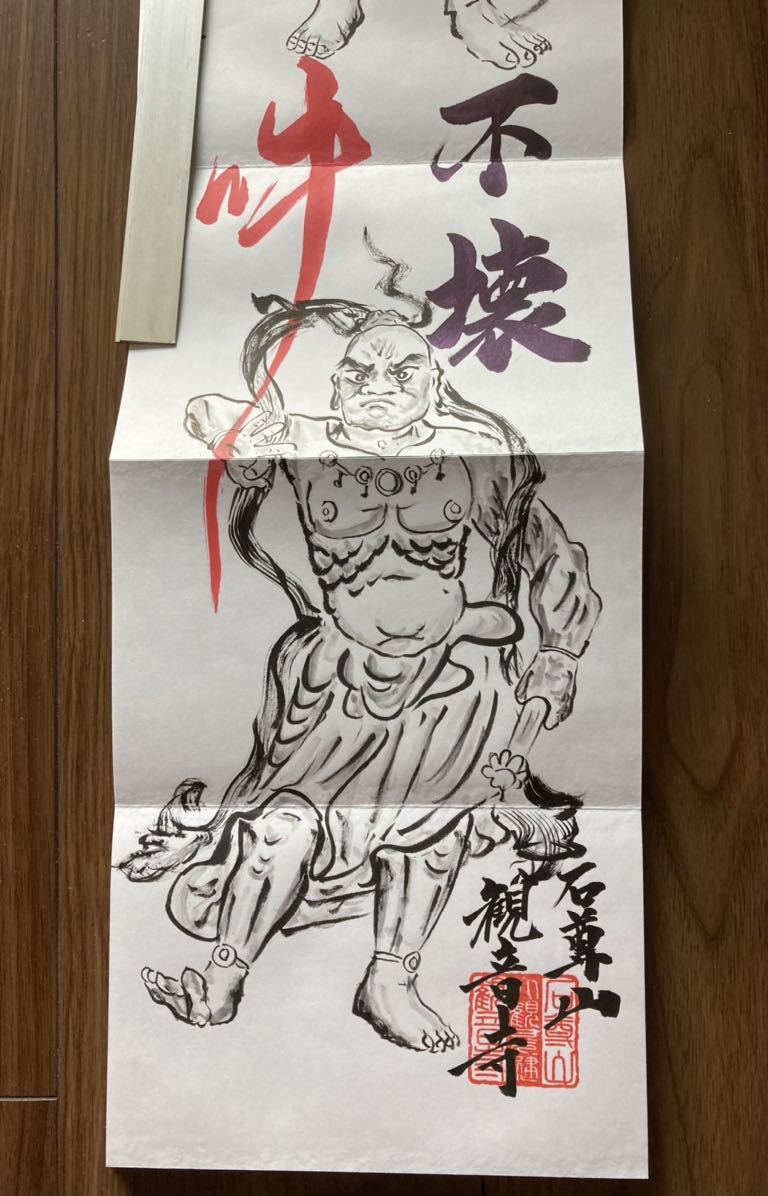 不壊
吽
石尊山
観音寺